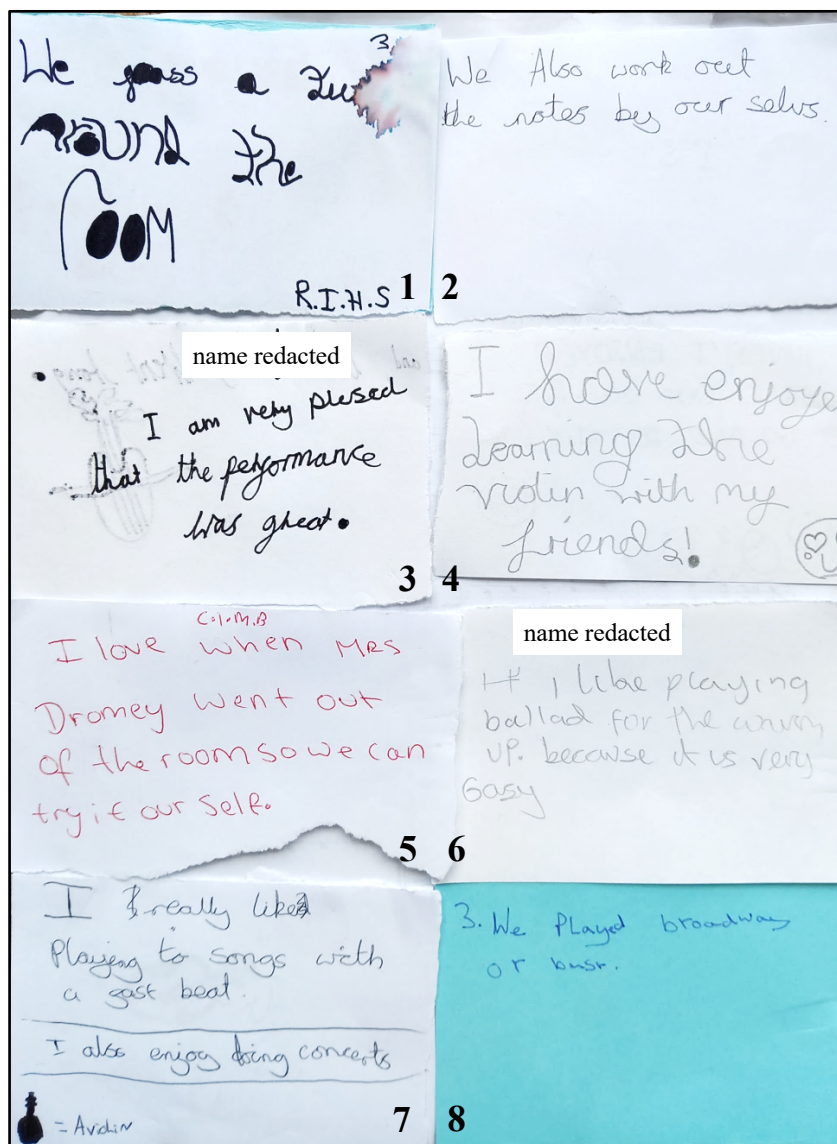 3.
We pass a
around the
room
R.I.H.S
1
We Also work out
the notes by our selvs.
2
name redacted
I am very plesed
that the performance
was great.
3
I have enjoye
Learning the
violin with my
friends!
4
C.I.M.B
I love when Mrs
Dromey went out
of the room so we can
try it our self.
5
name redacted
I like playing
ballad for the
up. because it is very
easy
6
I really liked
Playing to songs with
a fast beat.
I also enjoy doing concerts
= A violin
7
3. We Played broadway
or bust.
8